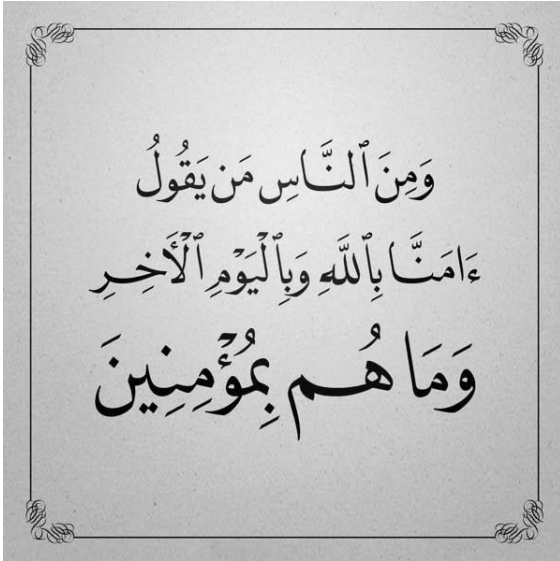 وَمِنَ ٱلنَّاسِ مَن يَقُولُ
ءَامَنَّا بِٱللَّهِ وَبِٱلْيَوْمِ ٱلْأَخِرِ
وَمَا هُم بِمُؤْمِنِينَ